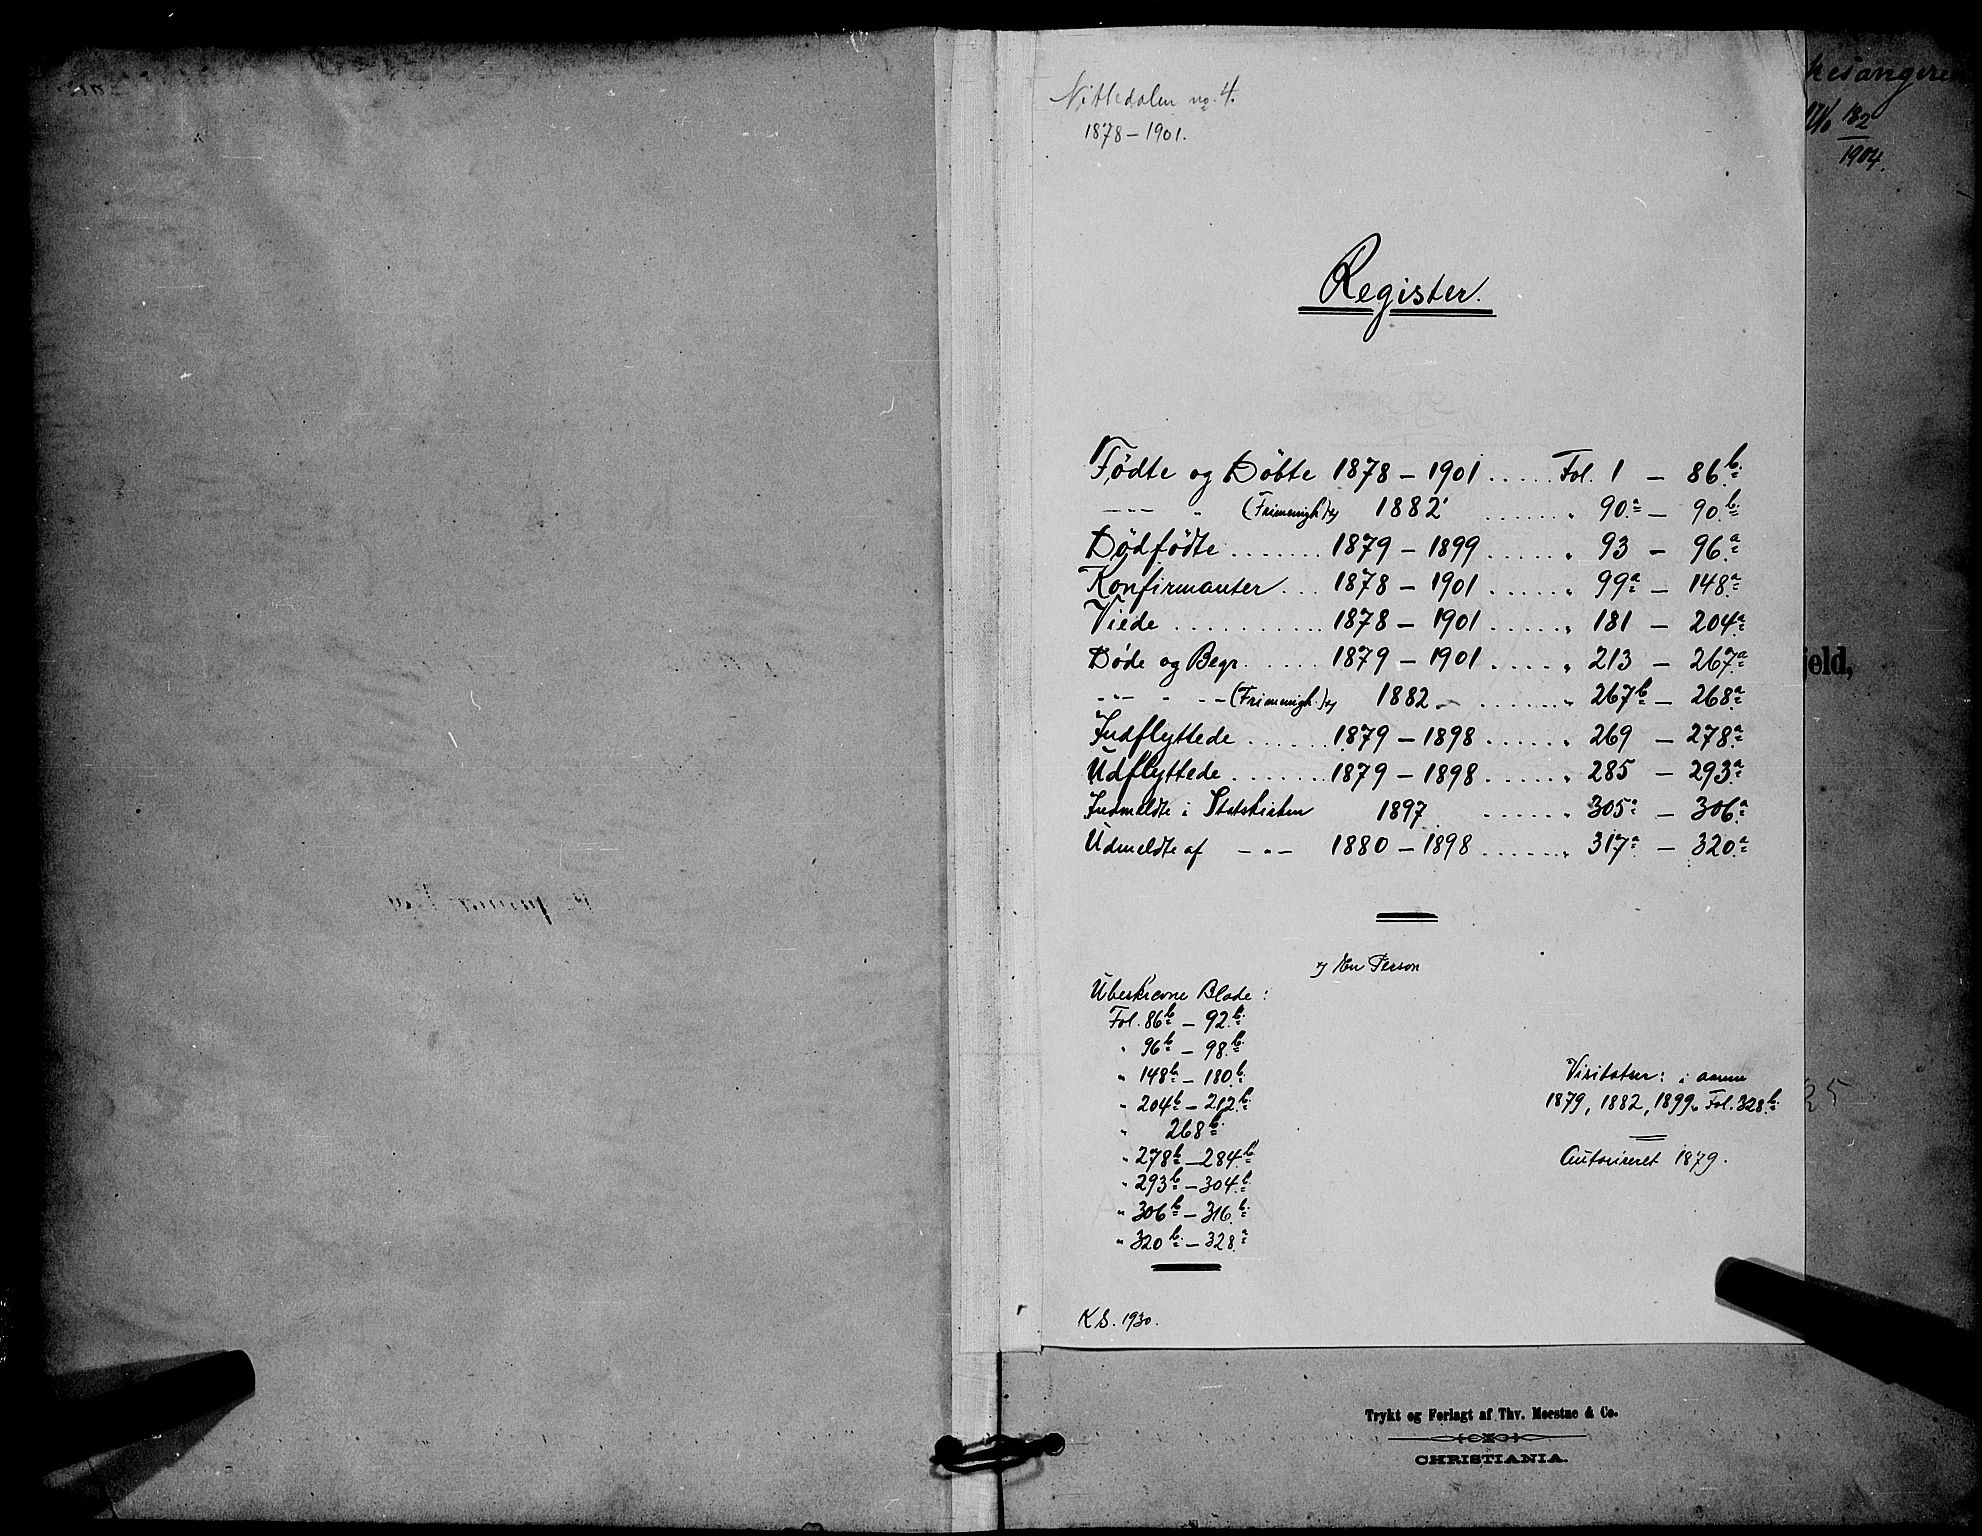 Nittedalen no. 4.
1878 – 1901.
Register.
Fødte og Døbte 1878 – 1901 ..... Fol. 1 – 86b.
––– " (Frimenigh.) x) 1882 ...... " 90a. – 90b.
Dødfødte ....... 1879 – 1899 ...... " 93 – 96a.
Konfirmanter ... 1878 – 1901 ...... " 99a – 148a.
Viede ........... 1878 – 1901 ...... " 181 – 204a.
Døde og Begr. ..... 1879 – 1901 ...... " 213 – 267a
–"– " –– (Frimenigh.) x) 1882 – ...... " 267b – 268a
Indflyttede ....... 1879 – 1898 ...... " 269 – 278a.
Udflyttede ....... 1879 – 1898 ...... " 285 – 293a.
Indmeldte i Statskirken 1897 ...... " 305a – 306a.
Udmeldte af –"– 1880 – 1898 ...... " 317a – 320a.
x) Een Person
Ubeskrevne Blade :
Fol. 86b – 92b.
" 96b – 98b.
" 148b – 180b.
" 204b – 212b.
" 268b
" 278b – 284b.
" 293b – 304b.
" 306b – 316b.
" 320b – 328a
Visitatser : i aarene
1879, 1882, 1899. Fol. 328b.
Autoriseret 1879.
K S. 1930.
182
1904.
jeld,
Trykt og Forlagt af Thv. Moestue & Co.
CHRISTIANIA.